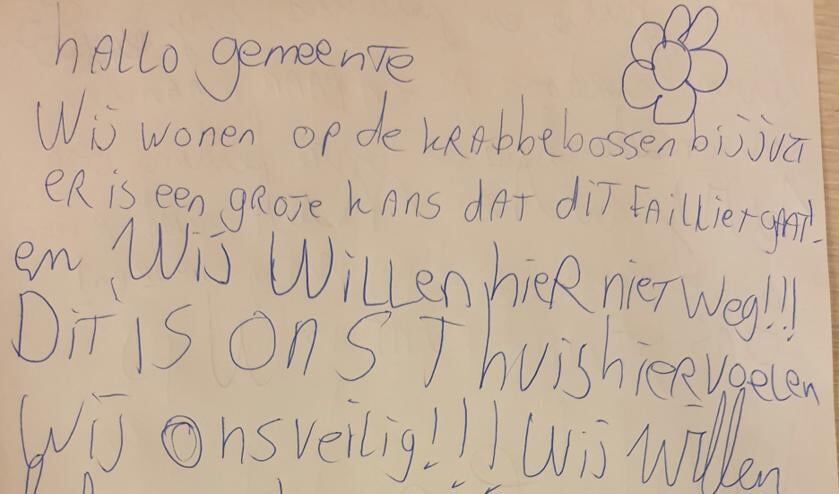 hALLO gemeenTe
Wij wonen op de KRAbbebossen bij jvzt
ER is een gROTe kANS dAT diT FAiLLieT gAAT!
en Wij WiLLen hieR nieT weg!!!
DiT is OnS Thuis hieR voelen
Wij Ons veilig!!! Wij willen